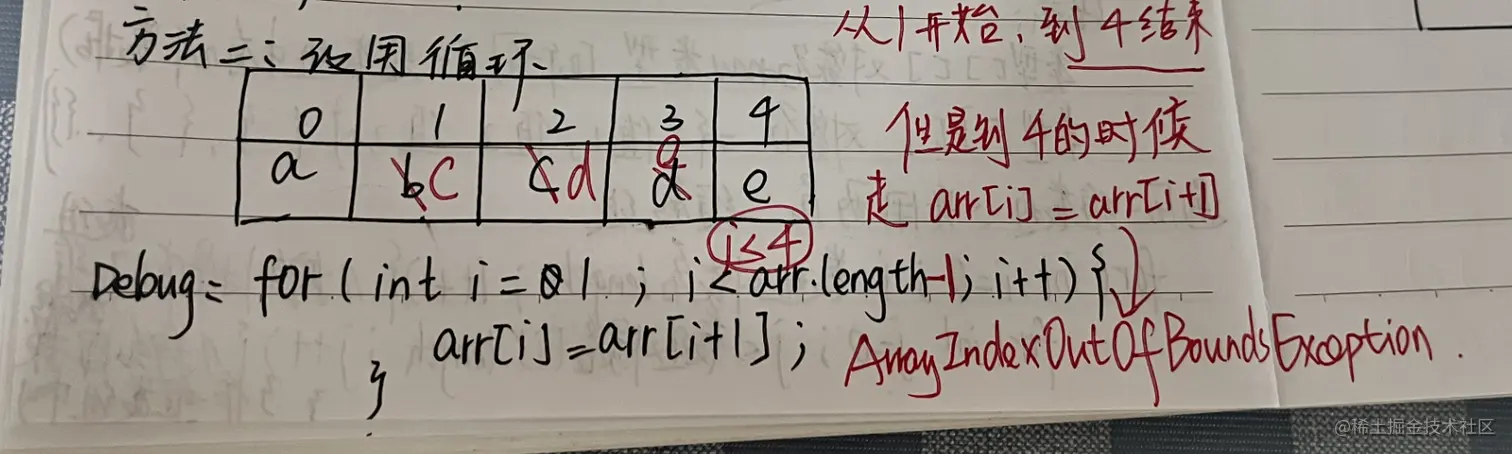 方法二：改用循环
从1开始，到4结束
0 1 2 3 4
a b c c d d e e
但是到4的时候
走 arr[i] = arr[i+1]
i≤4
Debug: for (int i = 0 1 ; i < arr.length-1; i++) {
arr[i] = arr[i+1];
ArrayIndexOutOfBoundsException.
}
@稀土掘金技术社区